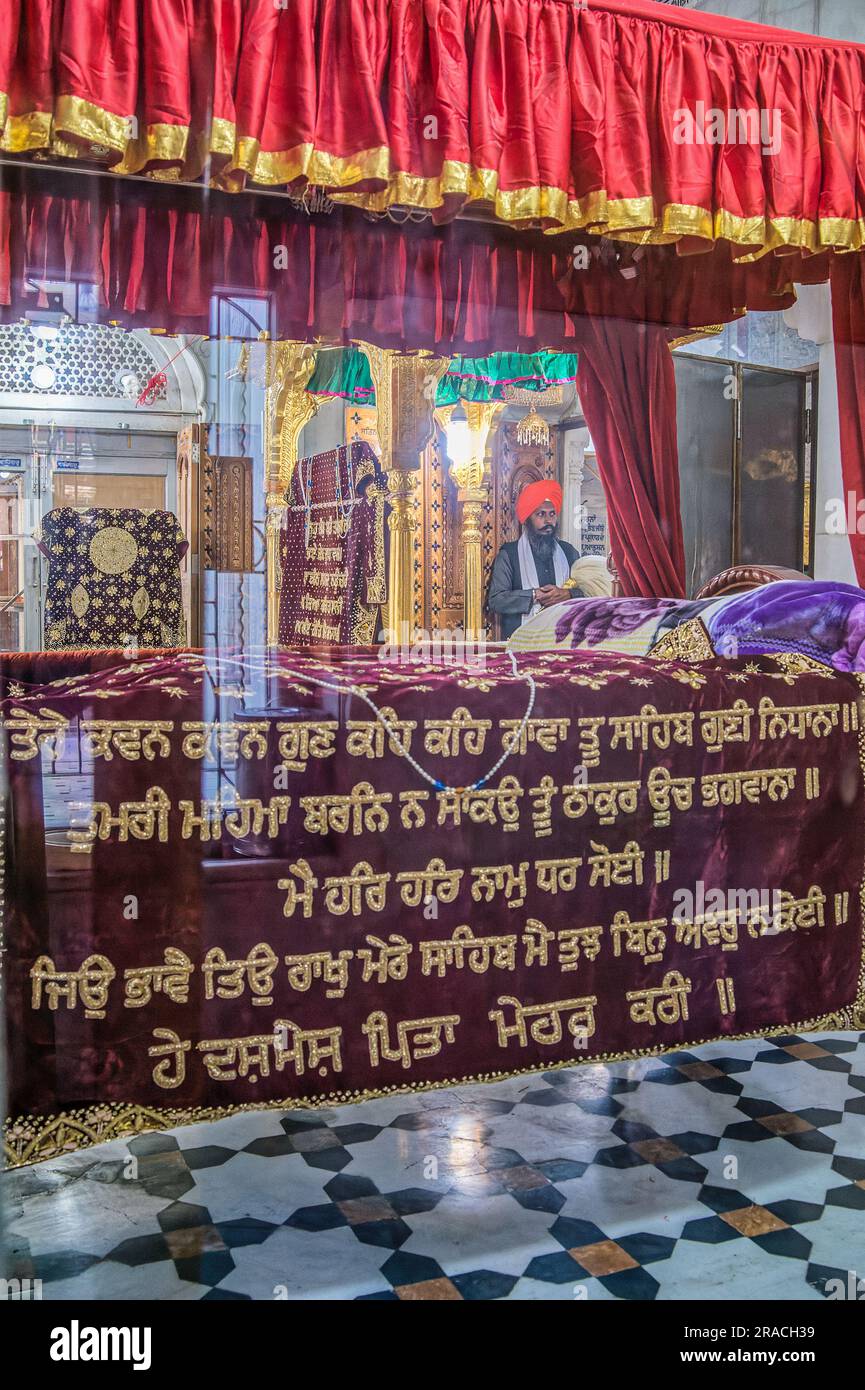 ਤੇਰੇ ਕਵਨ ਕਵਨ ਗੁਣ ਕਹਿ ਕਹਿ ਗਾਵਾ ਤੂ ਸਾਹਿਬ ਗੁਣੀ ਨਿਧਾਨਾ॥
ਤੁਮਰੀ ਮਹਿਮਾ ਬਰਨਿ ਨ ਸਾਕਉ ਤੂੰ ਠਾਕੁਰ ਊਚ ਭਗਵਾਨਾ ॥
ਮੈ ਹਰਿ ਹਰਿ ਨਾਮੁ ਧਰ ਸੋਈ ॥
ਜਿਉ ਭਾਵੈ ਤਿਉ ਰਾਖੁ ਮੇਰੇ ਸਾਹਿਬ ਮੈ ਤੁਝ ਬਿਨੁ ਅਵਰੁ ਨ ਕੋਈ ॥
ਹੇ ਦਸ਼ਮੇਸ਼ ਪਿਤਾ ਮੇਹਰ ਕਰੀਂ ॥
a
alamy
Image ID: 2RACH39
www.alamy.com